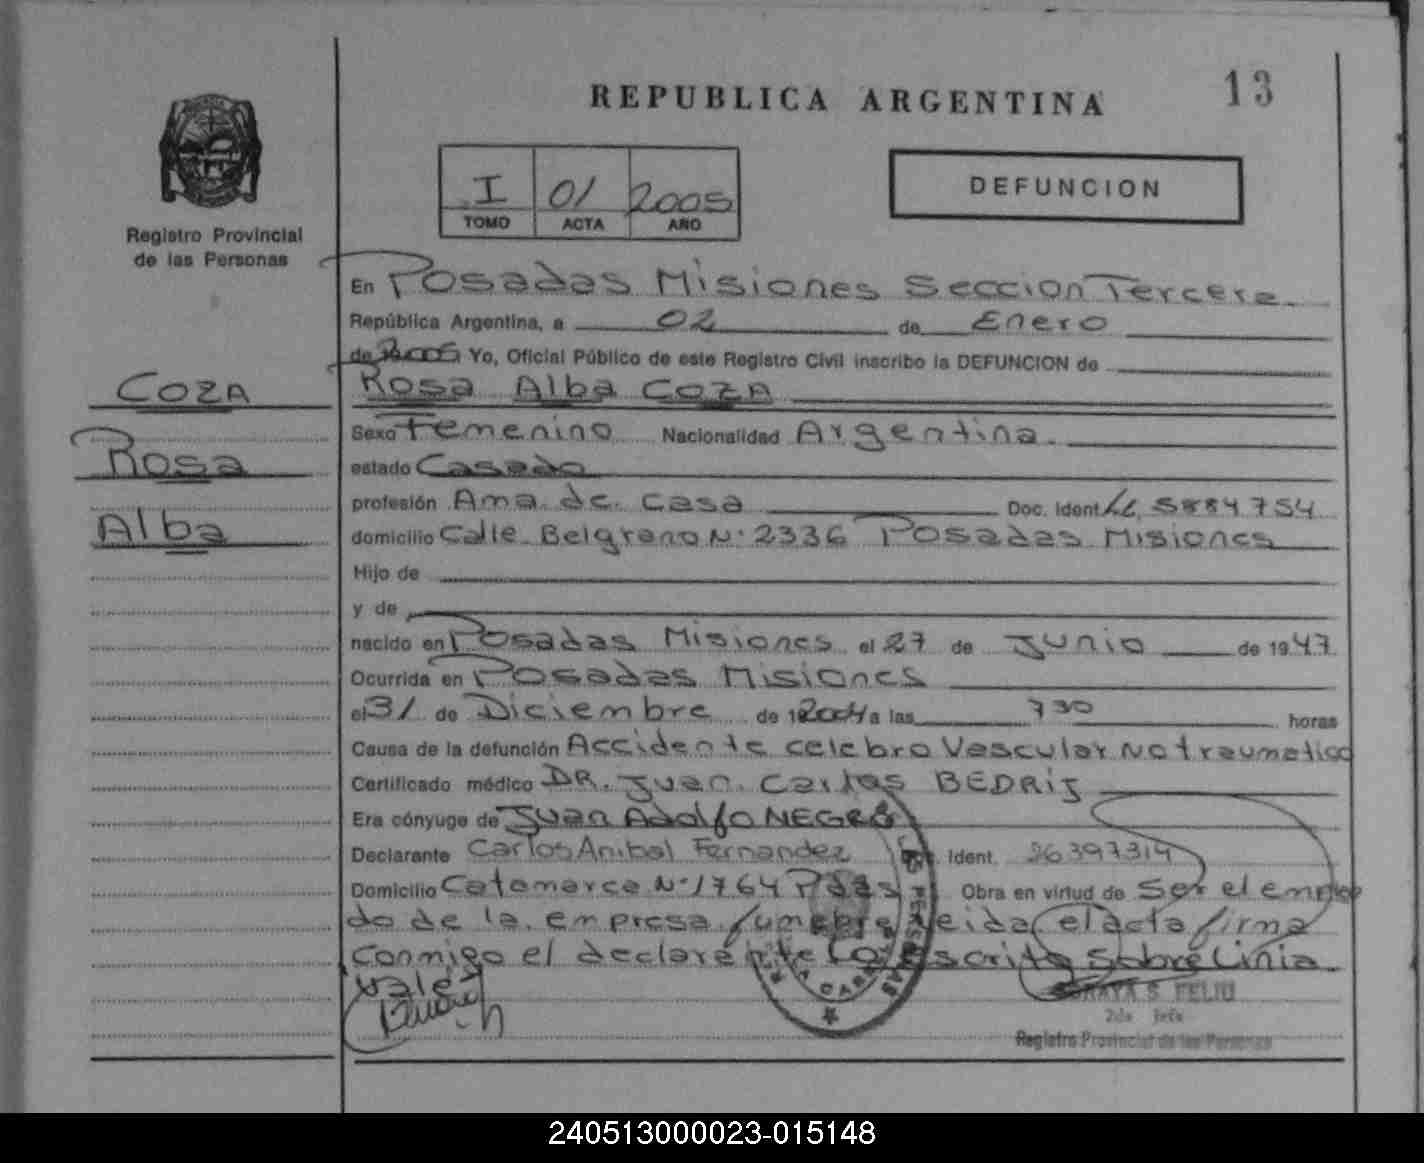 REPUBLICA ARGENTINA
13
I 01 2005
TOMO ACTA AÑO
DEFUNCION
Registro Provincial
de las Personas
COZA
Rosa
Alba
En Posadas Misiones Seccion Tercera
República Argentina, a 02 de Enero
de 2005 Yo, Oficial Público de este Registro Civil inscribo la DEFUNCION de
Rosa Alba COZA
Sexo Femenino Nacionalidad Argentina
estado Casado
profesión Ama de casa Doc. Ident LC 5884754
domicilio Calle Belgrano Nº 2336 Posadas Misiones
Hijo de
y de
nacido en Posadas Misiones el 27 de Junio de 1947
Ocurrida en Posadas Misiones
el 31 de Diciembre de 2004 a las 730 horas
Causa de la defunción Accidente celebro Vascular No traumatico
Certificado médico DR. Juan Carlos BEDRIJ
Era cónyuge de Juan Adolfo NEGRO
Declarante Carlos Anibal Fernandez Ident. 26397314
Domicilio Catamarca Nº 1764 Pdas Obra en virtud de Ser el emplea
do de la empresa funebre Leida el acta firma
Conmigo el declarante Lo escrito Sobre Linia
Vale
SORAYA S. FELIU
2da Jefe
Registro Provincial de las Personas
240513000023-015148